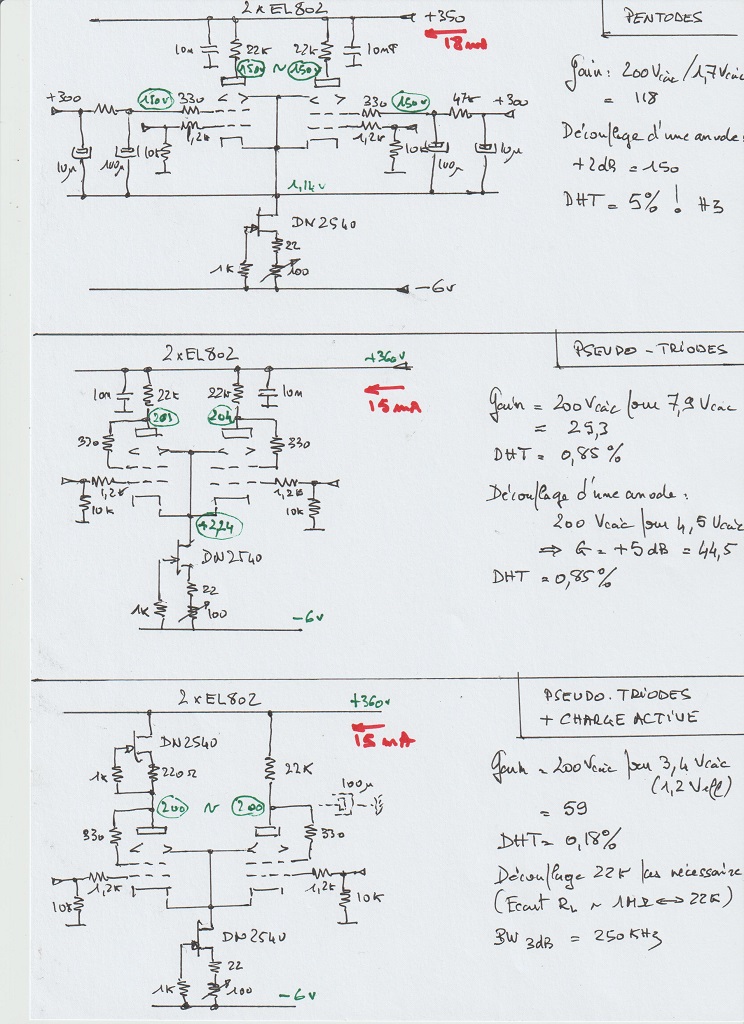 2 x EL802
+350
18 mA
10n
22K
22K
10nF
150v
~
150v
+300
150v
330
330
150v
47K
+300
1,2K
1,2K
10K
10K
10µ
100µ
100µ
10µ
1,14v
DN2540
22
1K
100
-6v
PENTODES
Gain: 200Vcàc/1,7Vcàc
= 118
Découplage d'une anode:
+2dB = 150
DHT = 5% ! H3
2 x EL802
+360v
15 mA
10n
22K
22K
10n
203
204
330
330
1,2K
1,2K
10K
10K
+2,24
DN2540
22
1K
100
-6v
PSEUDO - TRIODES
Gain = 200Vcàc pour 7,9 Vcàc
= 25,3
DHT = 0,85%
Découplage d'une anode:
200 Vcàc pour 4,5 Vcàc
⇒ G = +5dB = 44,5
DHT = 0,85%
2 x EL802
+360v
15 mA
DN2540
1K
220Ω
22K
100µ
200
~
200
330
330
1,2K
1,2K
10K
10K
DN2540
22
1K
100
-6v
PSEUDO.TRIODES
+ CHARGE ACTIVE
Gain = 200Vcàc pour 3,4 Vcàc
(1,2 Veff)
= 59
DHT = 0,18%
Découplage 22K pas nécessaire
(Ecart RL ~ 1MΩ ↔ 22K)
BW 3dB = 250KHz